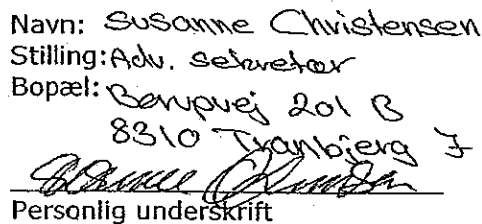 Navn: Susanne Christensen
Stilling: Adv. sekretær
Bopæl: Berupvej 201 B
8310 Tranbjerg J
Personlig underskrift